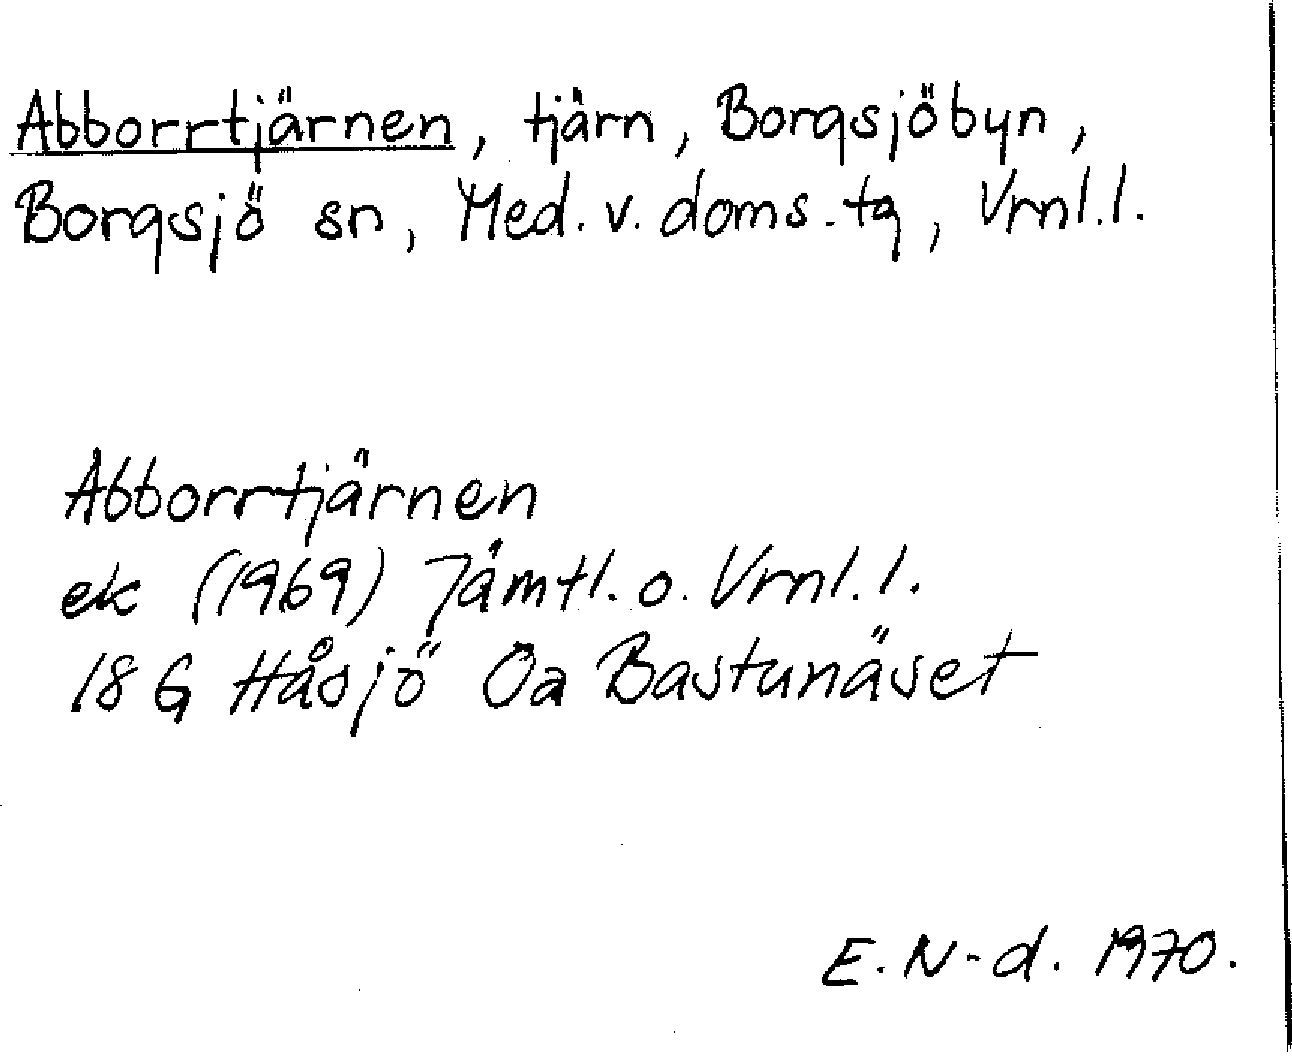 Abborrtjärnen, tjärn, Borgsjöbyn,
Borgsjö sn, Med. v. doms. tg, Vrnl.l.
Abborrtjärnen
ek (1969) Jämtl. o. Vrnl.l.
18 G Håsjö Öa Bastunäset
E. N-d. 1970.